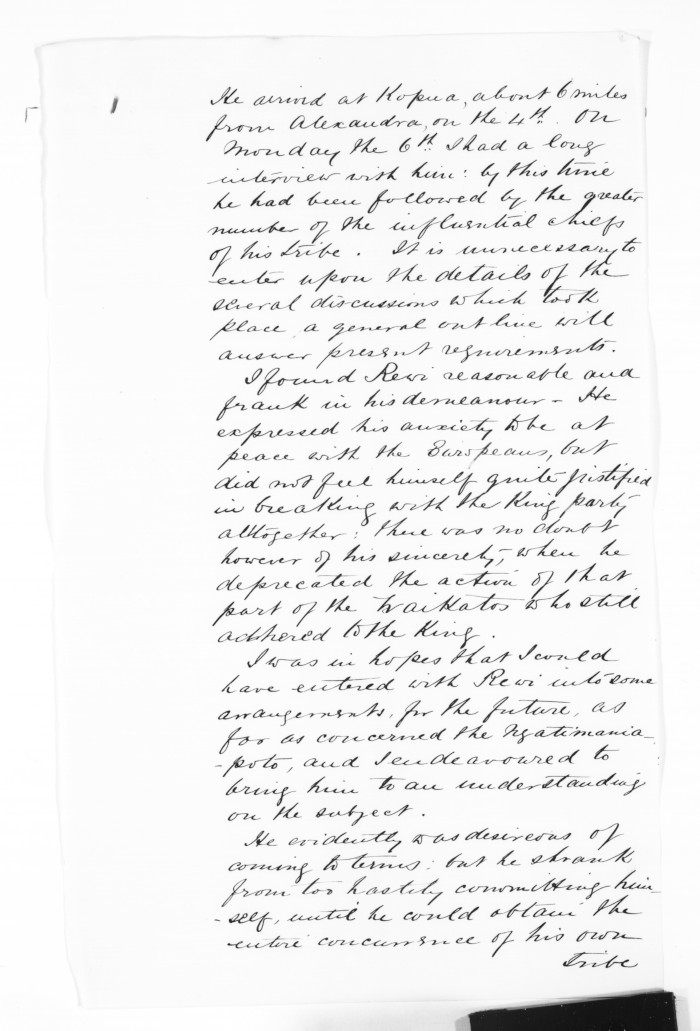 He arived at Kopua, about 6 miles
from Alexandra, on the 4th. On
Monday the 6th I had a long
interview with him: by this time
he had been followed by the greater
number of the influential chiefs
of his tribe. It is unnecessary to
enter upon the details of the
several discussions which took
place, a general outline will
answer present requirements.
I found Rewi reasonable and
frank in his demeanour - He
expressed his anxiety to be at
peace with the Europeans, but
did not feel himself quite justified
in breaking with the King party
altogether: there was no doubt
however of his sincerety, when he
deprecated the action of that
part of the Waikatos who still
adhered to the King.
I was in hopes that I could
have entered with Rewi into some
arrangements, for the future, as
far as concerned the Ngatimania-
-poto, and I endeavoured to
bring him to an understanding
on the subject.
He evidently was desireous of
coming to terms: but he shrank
from too hastily committing him-
-self, until he could obtain the
entire concurrence of his own
tribe